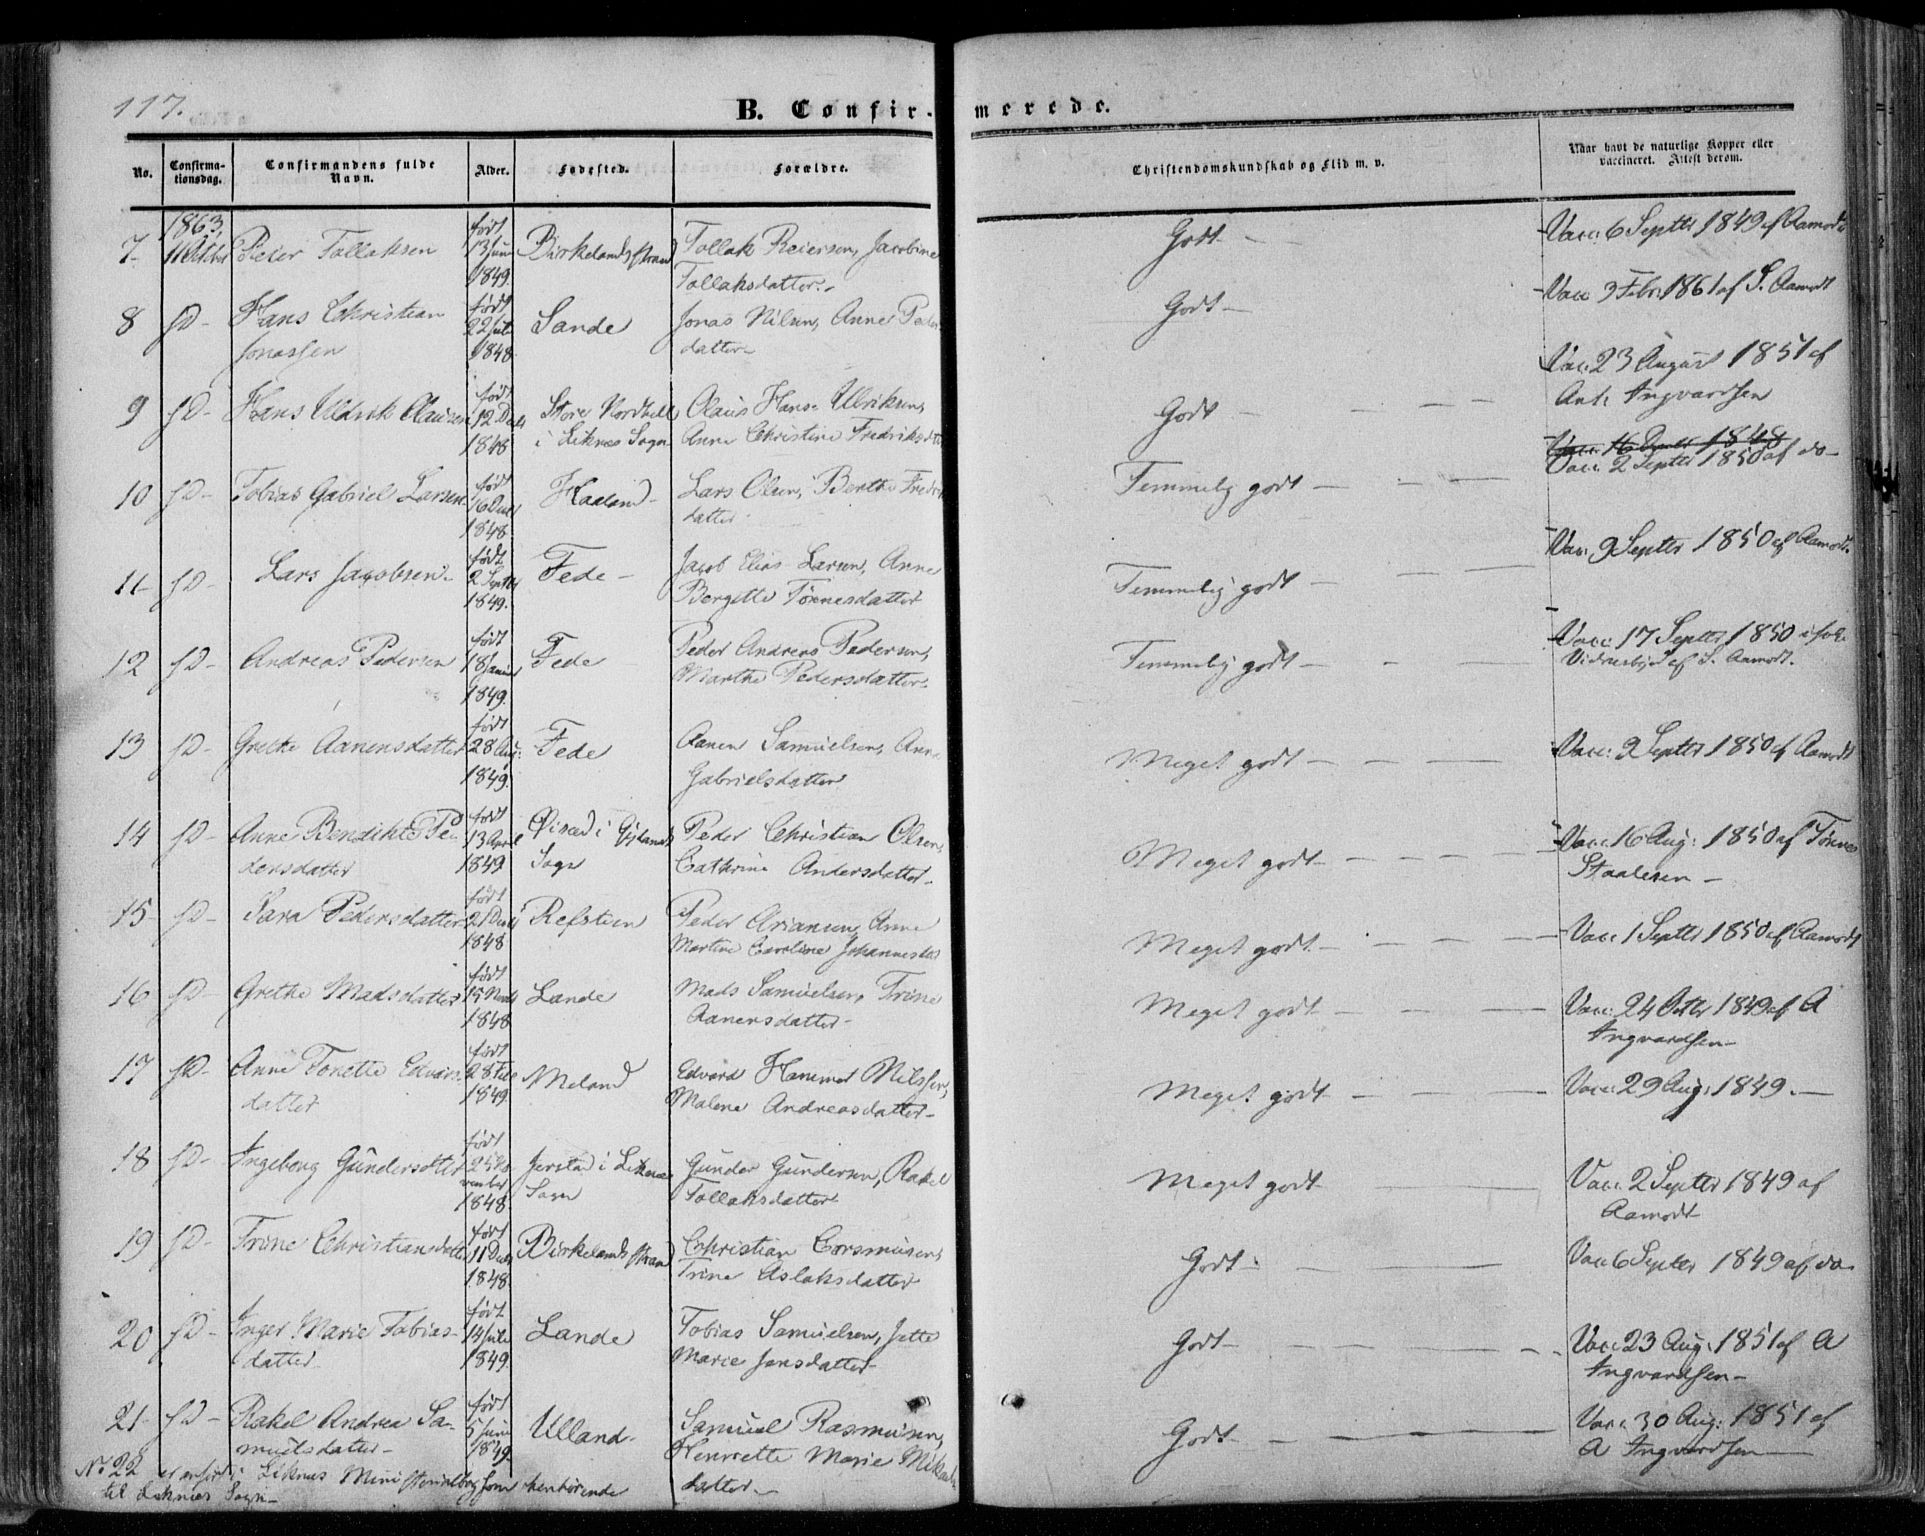 117.
B. Confirmerede.
No. Confirmationsdag. Confirmandens fulde Navn. Alder. Fødested. Forældre. Christendomskundskab og Flid m. v. Naar havt de naturlige Kopper eller vaccineret. Attest derom.
1863,
7. 11 Octbr Peder Tollaksen født 13 Juni 1849. Birkelandsstrand Tollak Reiersen, Jacobine Tollaksdatter. Godt — Vacc: 6 Septbr 1849 af Aamodt
8 sD- Hans Christian Jonassen født 22 Juli 1848 Sande Jonas Nilsen, Anne Peders datter Godt — Vacc 3 Febr 1861 af S. Aamodt
9 sD- Hans Uldrik Olausen født 12 Decb 1848 Store Nordhell i Liknes Sogn Olaus Hans Ulriksen, Anne Christine Fredriksdtr Godt — Vac: 23 August 1851 af Ant: Ingvardsen
10 sD- Tobias Gabriel Larsen født 16 Decb 1848 Haaland Lars Olsen, Berthe Fredriks datter Temmelig godt — Vacc: 2 Septbr 1850 af do-
11 sD- Lars Jacobsen født 2 Septbr 1849. Fede Jacob Elias Larsen, Anne Bergitte Tønnesdatter Temmelig godt — Vac: 9 Septbr 1850 af Aamodt
12 sD- Andreas Pedersen født 18 Januar 1849. Fede Peder Andreas Pedersen, Marthe Pedersdatter Temmelig godt — Vacc: 17 Septbr 1850 ifølge Vidnesbyrd af S. Aamodt.
13 sD- Grethe Aanensdatter født 28 Aug: 1849. Fede Aanen Samuelsen, Anne Gabrielsdatter Meget godt — Vacc: 2 Septbr 1850 af Aamodt
14 sD- Anne Bendikte Pedersdatter født 13 April 1849 i Gyland Sogn Peder Christian Olsen, Cathrine Andersdatter Meget godt — Vacc 16 Aug: 1850 af Tønnes Staalesen
15 sD- Sara Pedersdatter født 21 Decb 1848 Refsteen Peder Ariansen, Anne Martine Caroline Johannesdtr Meget godt — Vacc 1 Septbr 1850 af Aamodt
16 sD- Grethe Madsdatter født 15 Novb 1848 Lande Mads Samuelsen, Trine Aanensdatter Meget godt — Vacc: 24 Octbr 1849 af A Ingvardsen
17 sD- Anne Tonette Edvardsdatter født 28 Feb 1849 Meland Edvard Hammer Nilssen, Malene Andreasdatter Meget godt — Vacc: 29 Aug: 1849.
18 sD- Ingeborg Gundersdatter født 25 November 1848 Jerstad i Liknes Sogn Gunder Gundersen, Rakel Tollaksdatter Meget godt Vacc 2 Septbr 1849 af Aamodt
19 sD- Trine Christiansdatter født 11 Decb 1848 Birkelandsstrand Christian Corsmusen, Trine Aslaksdatter Godt — Vac: 6 Septbr 1849 af do-
20 sD- Inger Marie Tobiasdatter født 14 Juli 1849 Lande Tobias Samuelsen, Jette Marie Jensdatter Godt — Vac: 23 Aug: 1851 af A Ingvardsen
21 sD- Rakel Andrea Samuelsdatter født 5 Juni 1849 Ulland Samuel Rasmusen, Henriette Marie Mikals datter Godt — Vac: 30 Aug: 1851 af A Ingvardsen
No 22 er anført i Liknes Ministerialbog som henhørende
til Liknes Sogn